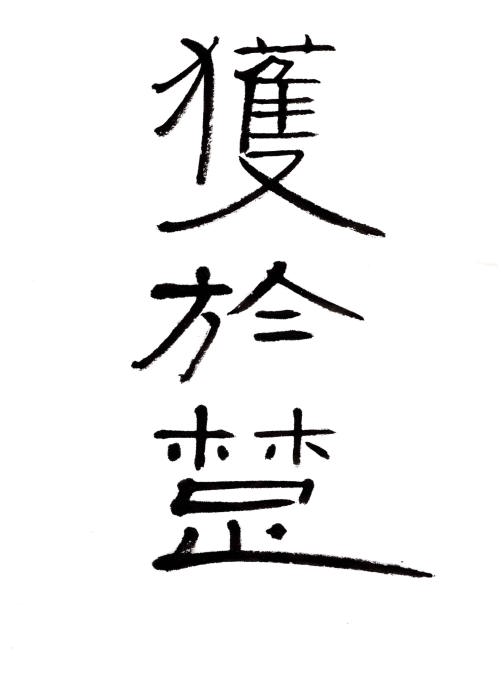 獲於楚